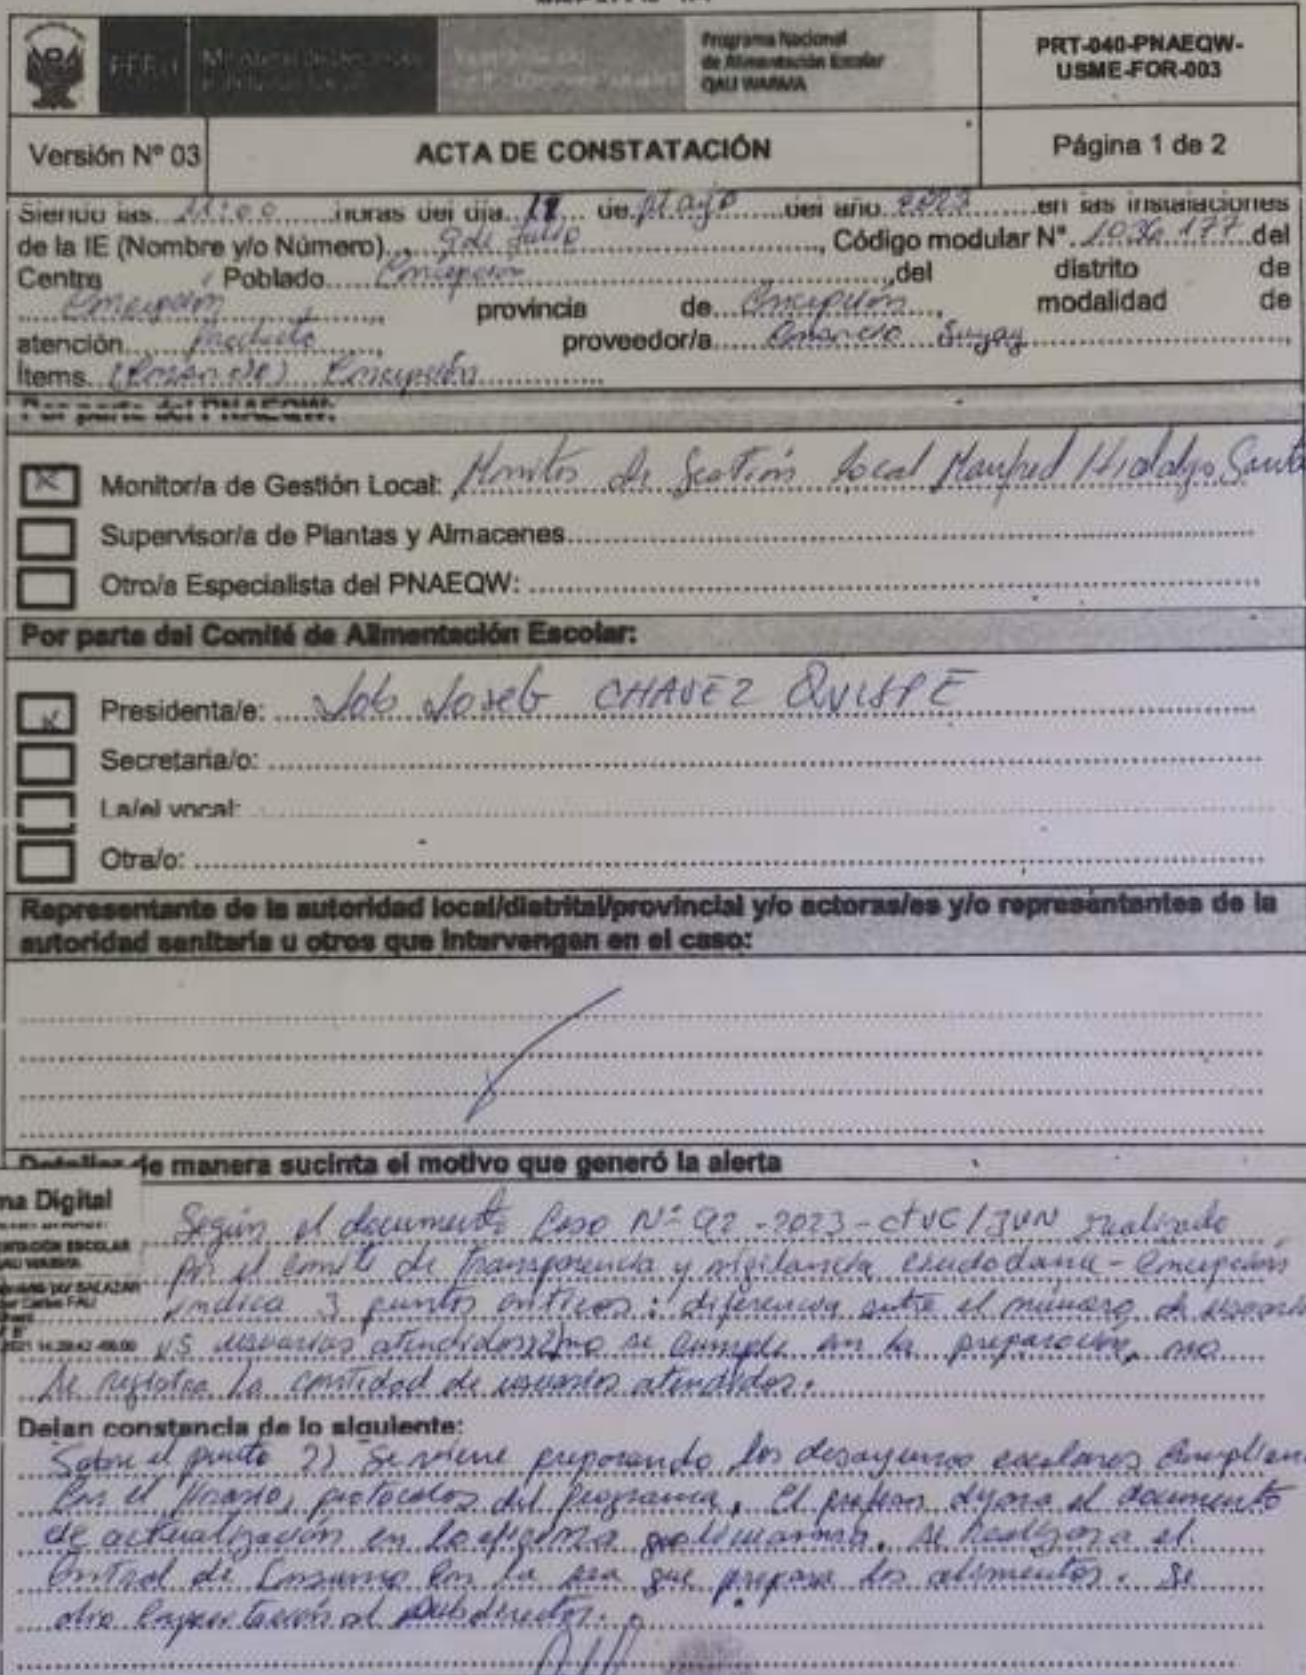 PERÚ
Programa Nacional
de Alimentación Escolar
QALI WARMA
PRT-040-PNAEQW-
USME-FOR-003
Versión Nº 03
ACTA DE CONSTATACIÓN
Página 1 de 2
Siendo las 11:00 horas del día 18 de Mayo del año 2023 en las instalaciones
de la IE (Nombre y/o Número) 9 de Julio, Código modular N° 1036177 del
Centro Poblado Concepción del distrito de
Concepción, provincia de Concepción, modalidad de
atención Producto, proveedor/a Consorcio
Ítems Concepción
Por parte del PNAEQW:
Monitor/a de Gestión Local: Monitor de Gestión Local Manfred Hidalgo
Supervisor/a de Plantas y Almacenes
Otro/a Especialista del PNAEQW:
Por parte del Comité de Alimentación Escolar:
Presidenta/e: Job Joseb CHAVEZ QUISPE
Secretaria/o:
La/el vocal:
Otra/o:
Representante de la autoridad local/distrital/provincial y/o actoras/es y/o representantes de la
autoridad sanitaria u otros que intervengan en el caso:
Detallar de manera sucinta el motivo que generó la alerta
ma Digital
Según el documento Caso Nº 92-2023-CTVC/JUN realizado
por el Comité de transparencia y vigilancia ciudadana - Concepción
indica 3 puntos críticos: diferencia entre el número de
vs usuarios atendidos, 2) no se cumple en la preparación, no
se registra la cantidad de usuarios atendidos.
Dejan constancia de lo siguiente:
Sobre el punto 2) Se viene preparando los desayunos escolares
con el Horario, protocolos del programa. El profesor el documento
de actualización en la oficina qaliwarma. Se el
Control de Consumo con la sra que prepara los alimentos. Se
dio Capacitación al Subdirector.